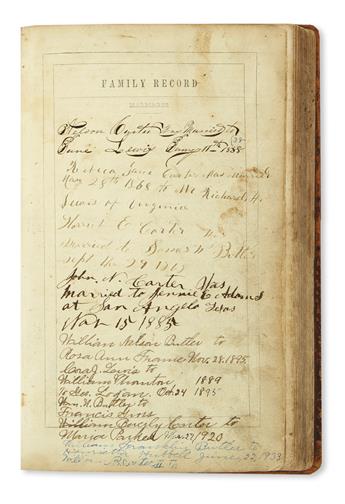 FAMILY RECORD
MARRIAGES
Nelson Carter Was Married to
Jane Lewis 11th 1838
Rebeca Jane Carter Was married
May 28th 1868 to Mr Richard H.
Lewis of Virginia
Harriet E Carter Was
Married to Butler
Sept the 29
John N. Carter Was
married to Jennie C Adams
at San Angelo Texas
Nov 15 1885
William Nelson Butler to
Rosa Ann Frame Nov. 28. 1895
Cora J. Lewis to
William Thornton 1889
To Geo. Logan. Oct. 24 1895
Wm. N. Butler to
Francis
William Carter to
Marion 1920
William Franklin Butler to
Hubbell June 22, 1933